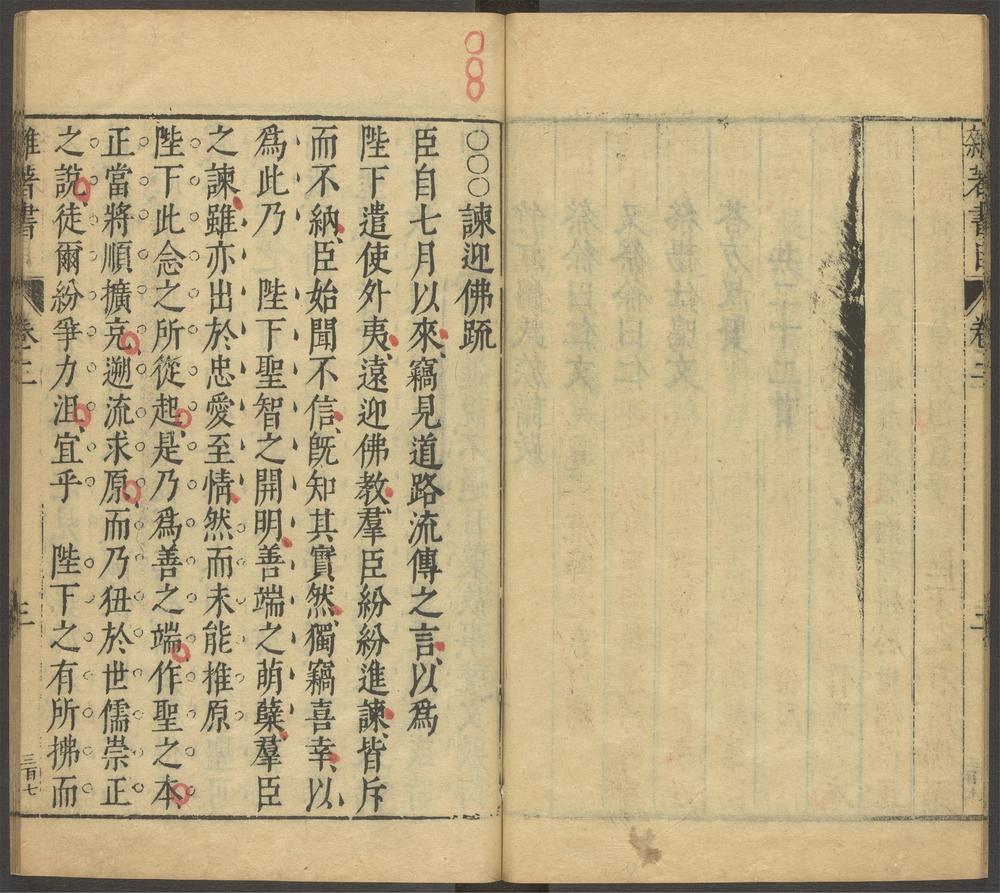 雜著書目 卷三 二
〇〇〇諫迎佛疏
臣自七月以來、竊見道路流傳之言、以爲
陛下遣使外夷、遠迎佛教、羣臣紛紛進諫、皆斥
而不納、臣始聞不信、旣知其實、然獨竊喜幸、以
爲此乃 陛下聖智之開明、善端之萌蘖、羣臣
之諫、雖亦出於忠愛至情、然而未能推原
陛下此念之所從起、是乃爲善之端、作聖之本、
正當將順擴充、遡流求原、而乃狃於世儒崇正
之說、徒爾紛爭力沮、宜乎 陛下之有所拂而
雜著書 卷三 三 三百七